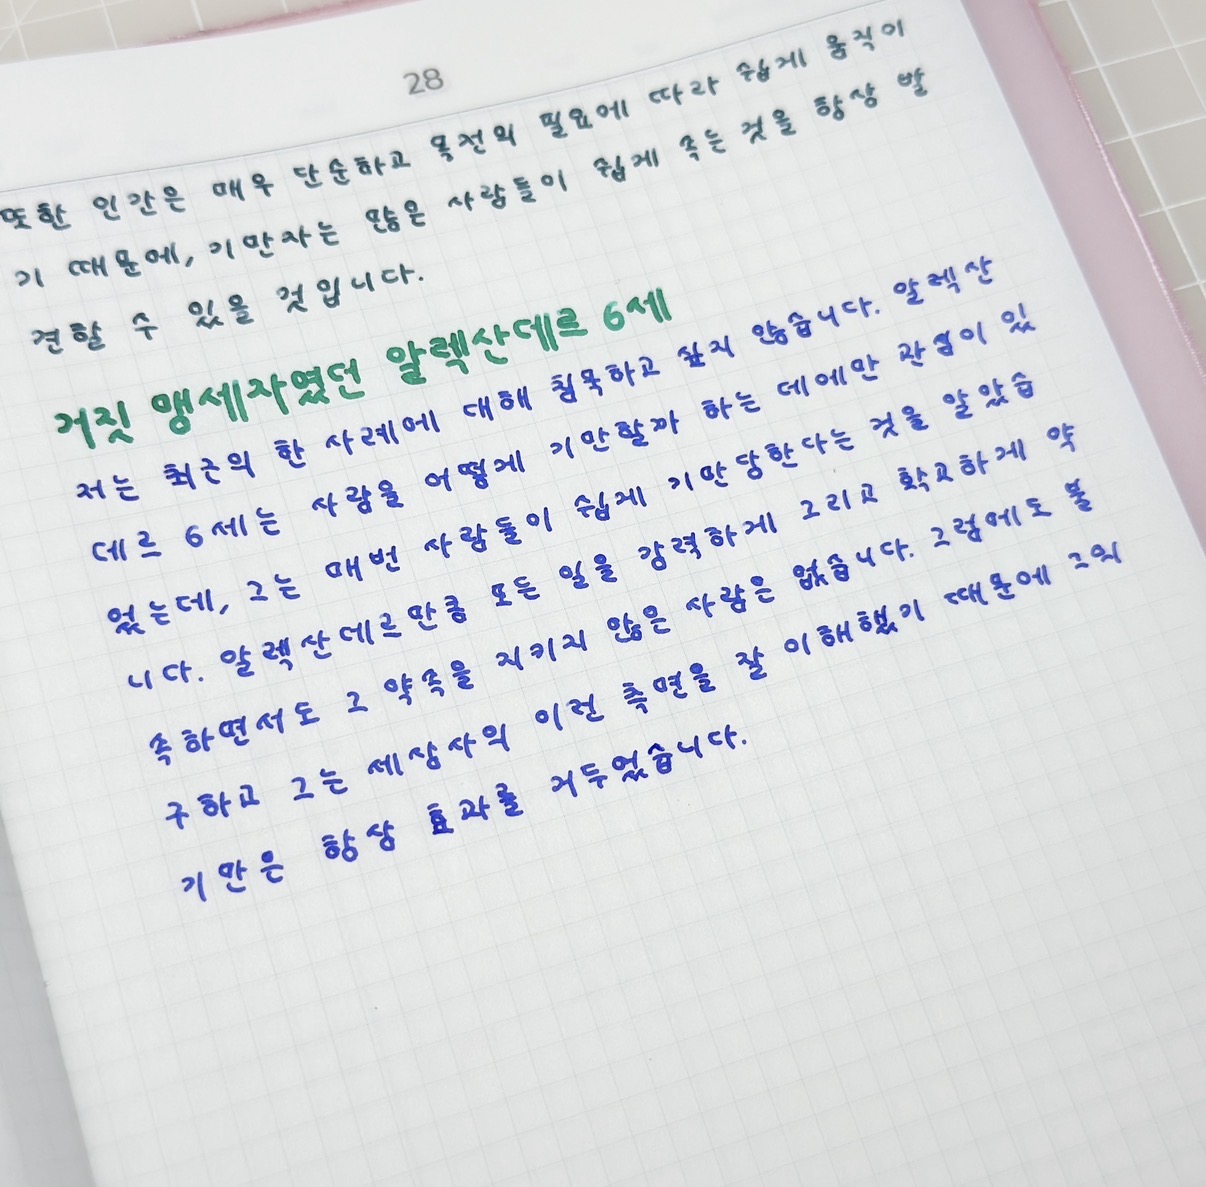 28
또한 인간은 매우 단순하고 목전의 필요에 따라 쉽게 움직이
기 때문에, 기만자는 많은 사람들이 쉽게 속는 것을 항상 발
견할 수 있을 것입니다.
거짓 맹세자였던 알렉산데르 6세
저는 최근의 한 사례에 대해 침묵하고 싶지 않습니다. 알렉산
데르 6세는 사람을 어떻게 기만할까 하는 데에만 관심이 있
었는데, 그는 매번 사람들이 쉽게 기만당한다는 것을 알았습
니다. 알렉산데르만큼 모든 일을 강력하게 그리고 확고하게 약
속하면서도 그 약속을 지키지 않은 사람은 없습니다. 그럼에도 불
구하고 그는 세상사의 이런 측면을 잘 이해했기 때문에 그의
기만은 항상 효과를 거두었습니다.